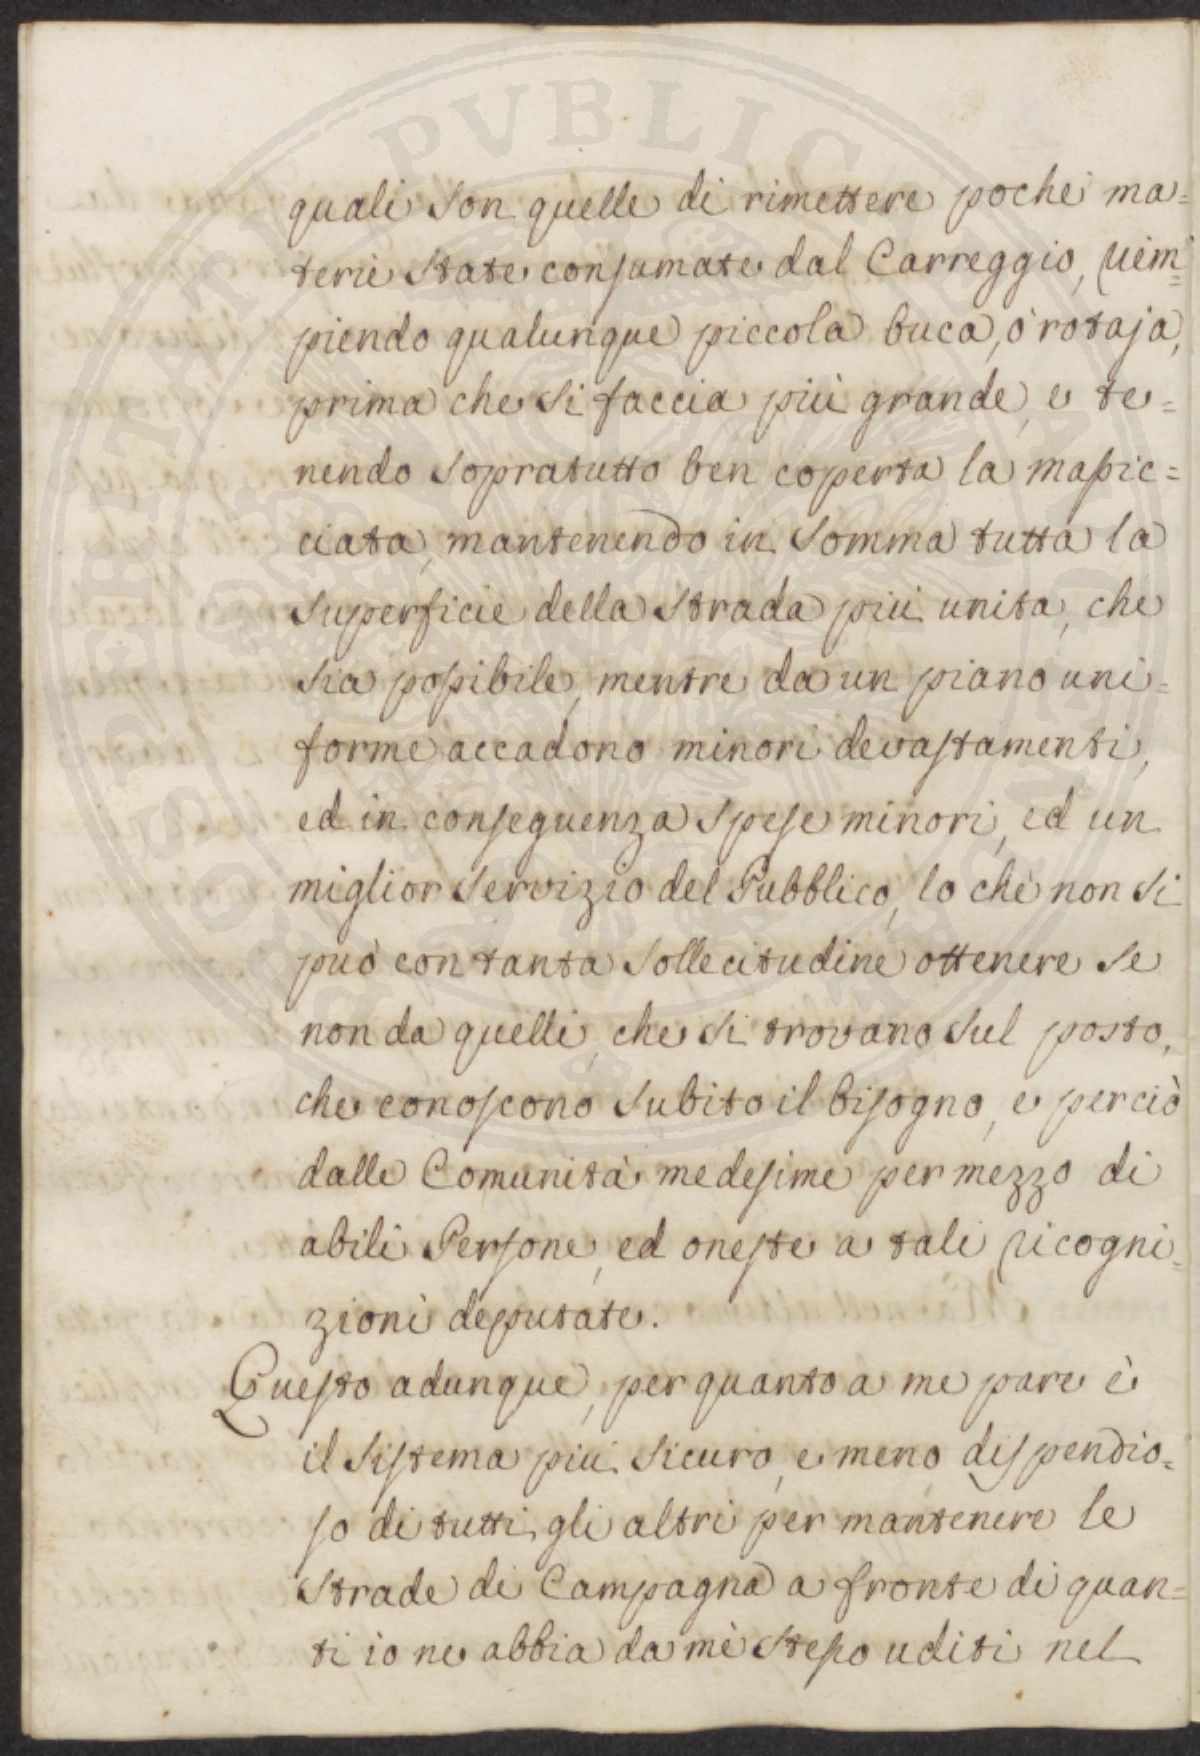 quali son quelle di rimettere poche ma=
terie state consumate dal Carreggio, riem=
piendo qualunque piccola buca, ò rotaja,
prima che si faccia più grande, e te=
nendo sopratutto ben coperta la massic=
ciata, mantenendo in somma tutta la
superficie della strada più unita, che
sia possibile, mentre da un piano uni=
forme accadono minori devastamenti,
ed in conseguenza spese minori, ed un
miglior servizio del Pubblico, lo che non si
può con tanta sollecitudine ottenere se
non da quelli, che si trovano sul posto,
che conoscono subito il bisogno, e perciò
dalle Comunità medesime per mezzo di
abili Persone, ed oneste a tali ricogni=
zioni deputate.
Questo adunque, per quanto a me pare è
il sistema più sicuro, e meno dispendio=
so di tutti gli altri per mantenere le
strade di Campagna a fronte di quan=
ti io ne abbia da mè stesso uditi nel
PROSPERITATI PVBLICAE